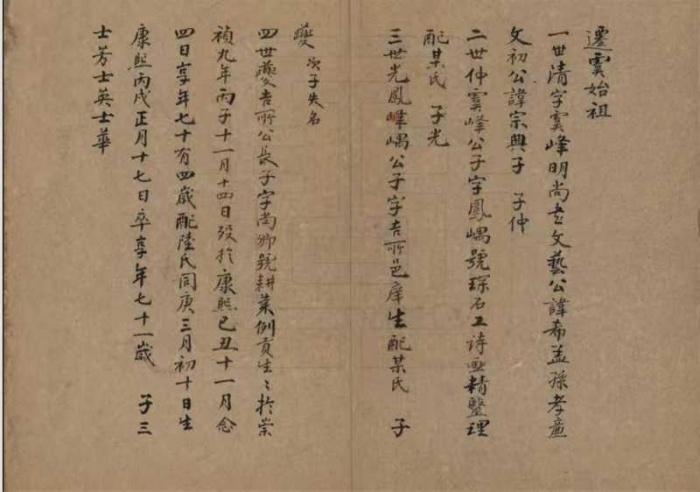 遷虞始祖
一世清字虞峰明尚書文藝公諱希孟孫孝童
文初公諱宗興子 子仲
二世仲虞峰公子字鳳嵎號琛石工诗画精毉理
配某氏 子光
三世光鳳嵎公子字吉所邑庠生配某氏 子
夔 次子失名
四世夔吉所公長子字尚卿號耕葉例貢生〻於崇
禎九年丙子十一月十四日殁於康熙己丑十一月念
四日享年七十有四歲配陸氏同庚三月初十日生
康熙丙戌正月十七日卒享年七十一歲 子三
士芳士英士華